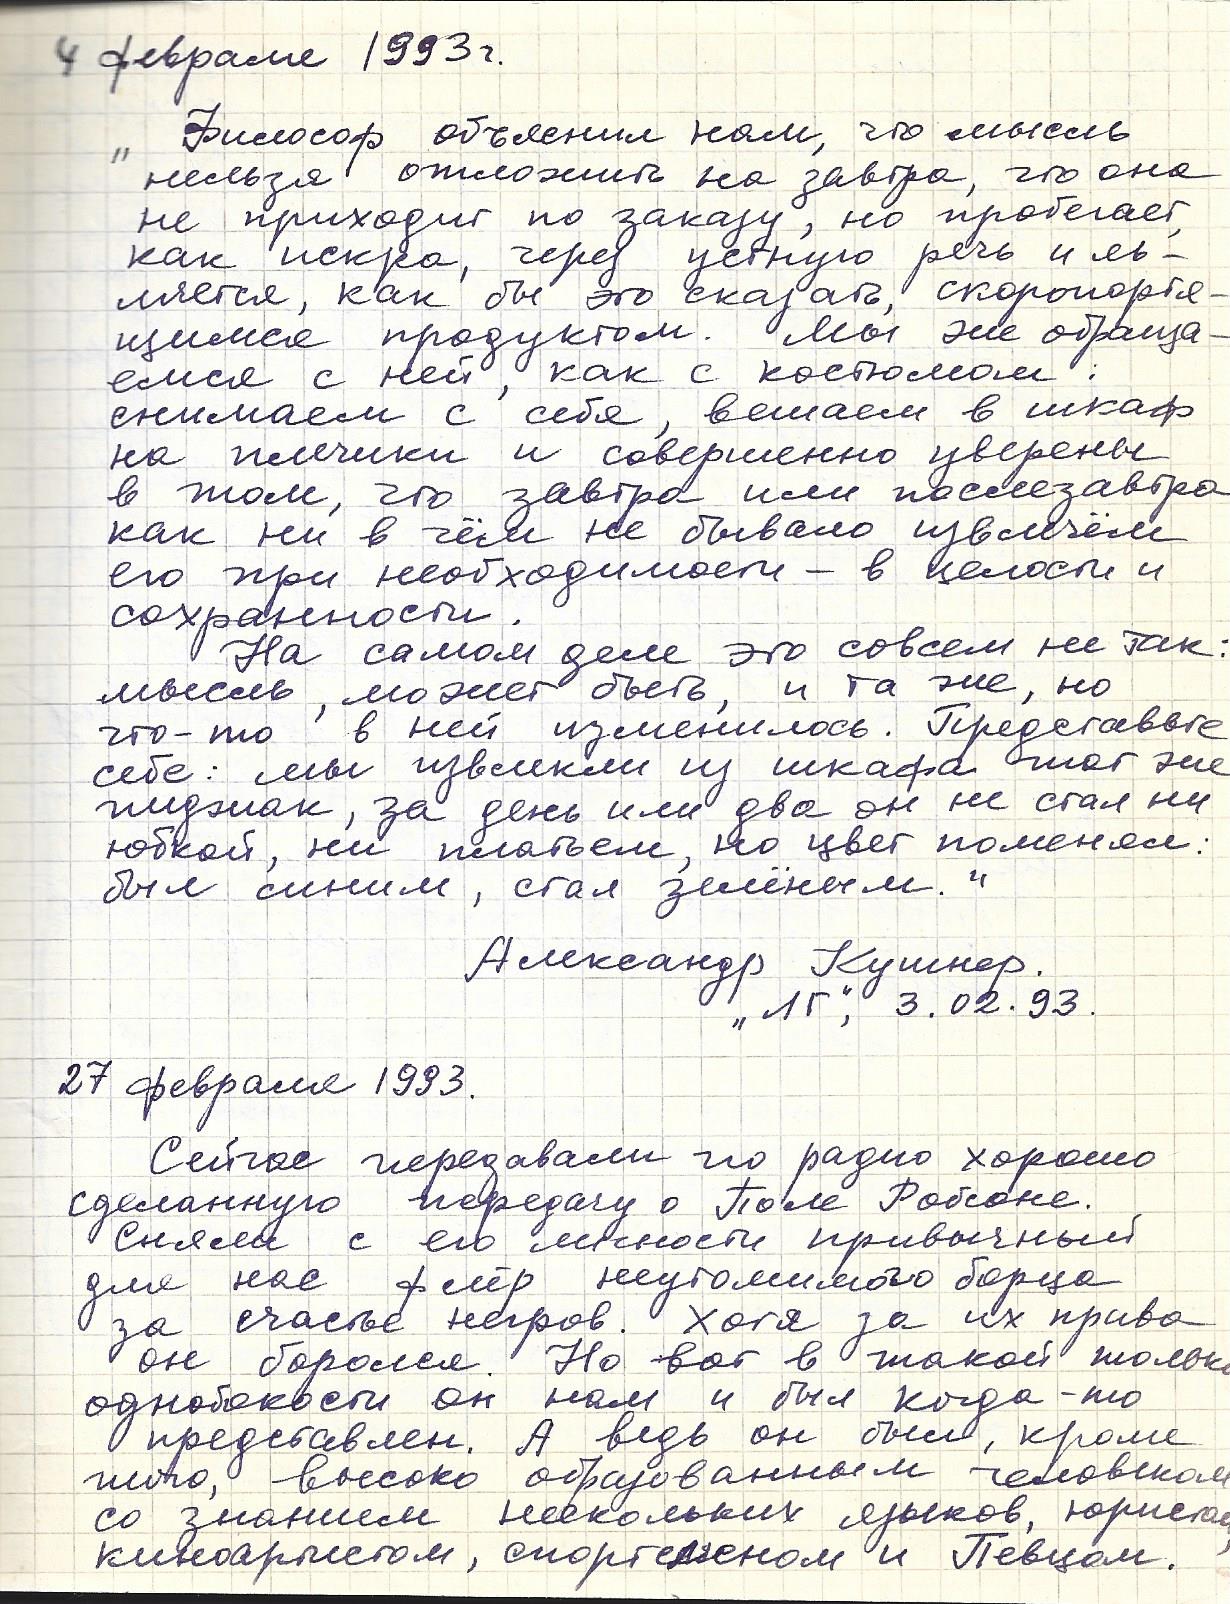 4 февраля 1993г.
„ Философ объяснил нам, что мысль
нельзя отложить на завтра, что она
не приходит по заказу, но пробегает,
как искра, через устную речь и яв-
ляется, как бы это сказать, скоропортя-
щимся продуктом. Мы же обраща-
емся с ней, как с костюмом:
снимаем с себя, вешаем в шкаф
на плечики и совершенно уверены
в том, что завтра или послезавтра
как ни в чём не бывало извлечём
его при необходимости – в целости и
сохранности.
На самом деле это совсем не так:
мысль, может быть, и та же, но
что-то в ней изменилось. Представьте
себе: мы извлекли из шкафа тот же
пиджак, за день или два он не стал ни
юбкой, ни платьем, но цвет поменял:
был синим, стал зелёным."
Александр Кушнер.
„ЛГ", 3.02.93.
27 февраля 1993.
Сейчас передавали по радио хорошо
сделанную передачу о Поле Робсоне.
Сняли с его личности привычный
для нас флёр неутомимого борца
за счастье негров. Хотя за их права
он боролся. Но вот в такой только
однобокости он нам и был когда-то
представлен. А ведь он был, кроме
того, высоко образованным человеком
со знанием нескольких языков, юристом,
киноартистом, спортсменом и Певцом.